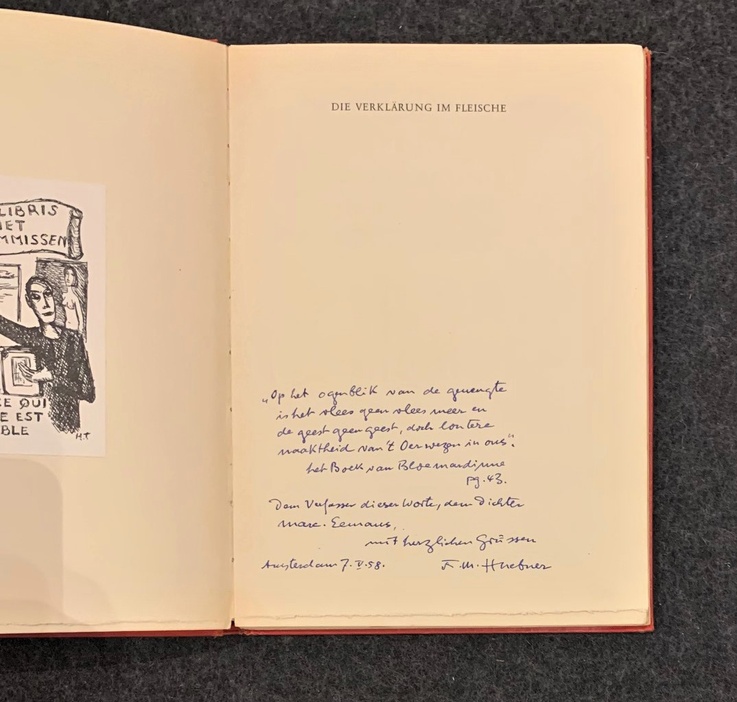 LIBRIS
ET
MMISSEN
CE QUI
E EST
BLE
H.T
DIE VERKLÄRUNG IM FLEISCHE
„Op het ogenblik van de geneugte
is het vlees geen vlees meer en
de geest geen geest, doch loutere
naaktheid van 't Oerwezen in ons".
het Boek van Bloemardinne
pg. 43.
Dem Verfasser dieser Worte, dem Dichter
Marc. Eemans,
mit herzlichen Grüssen
Amsterdam 7.V.58. F. M. Huebner